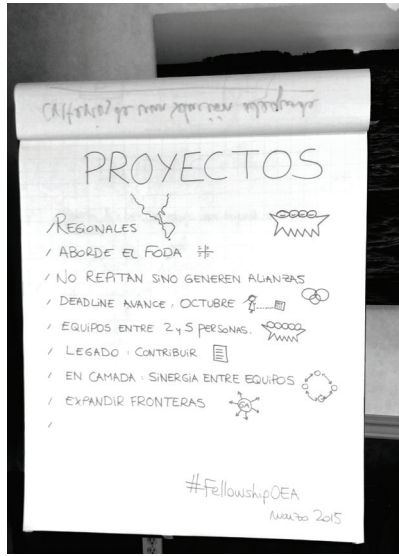 criterios de una solución adecuada
PROYECTOS
/ REGIONALES
/ ABORDE EL FODA
/ NO REPITAN SINO GENEREN ALIANZAS
/ DEADLINE AVANCE: OCTUBRE
/ EQUIPOS ENTRE 2 y 5 PERSONAS.
/ LEGADO: CONTRIBUIR
/ EN CAMADA: SINERGIA ENTRE EQUIPOS
/ EXPANDIR FRONTERAS
/
#FellowshipOEA
marzo 2015